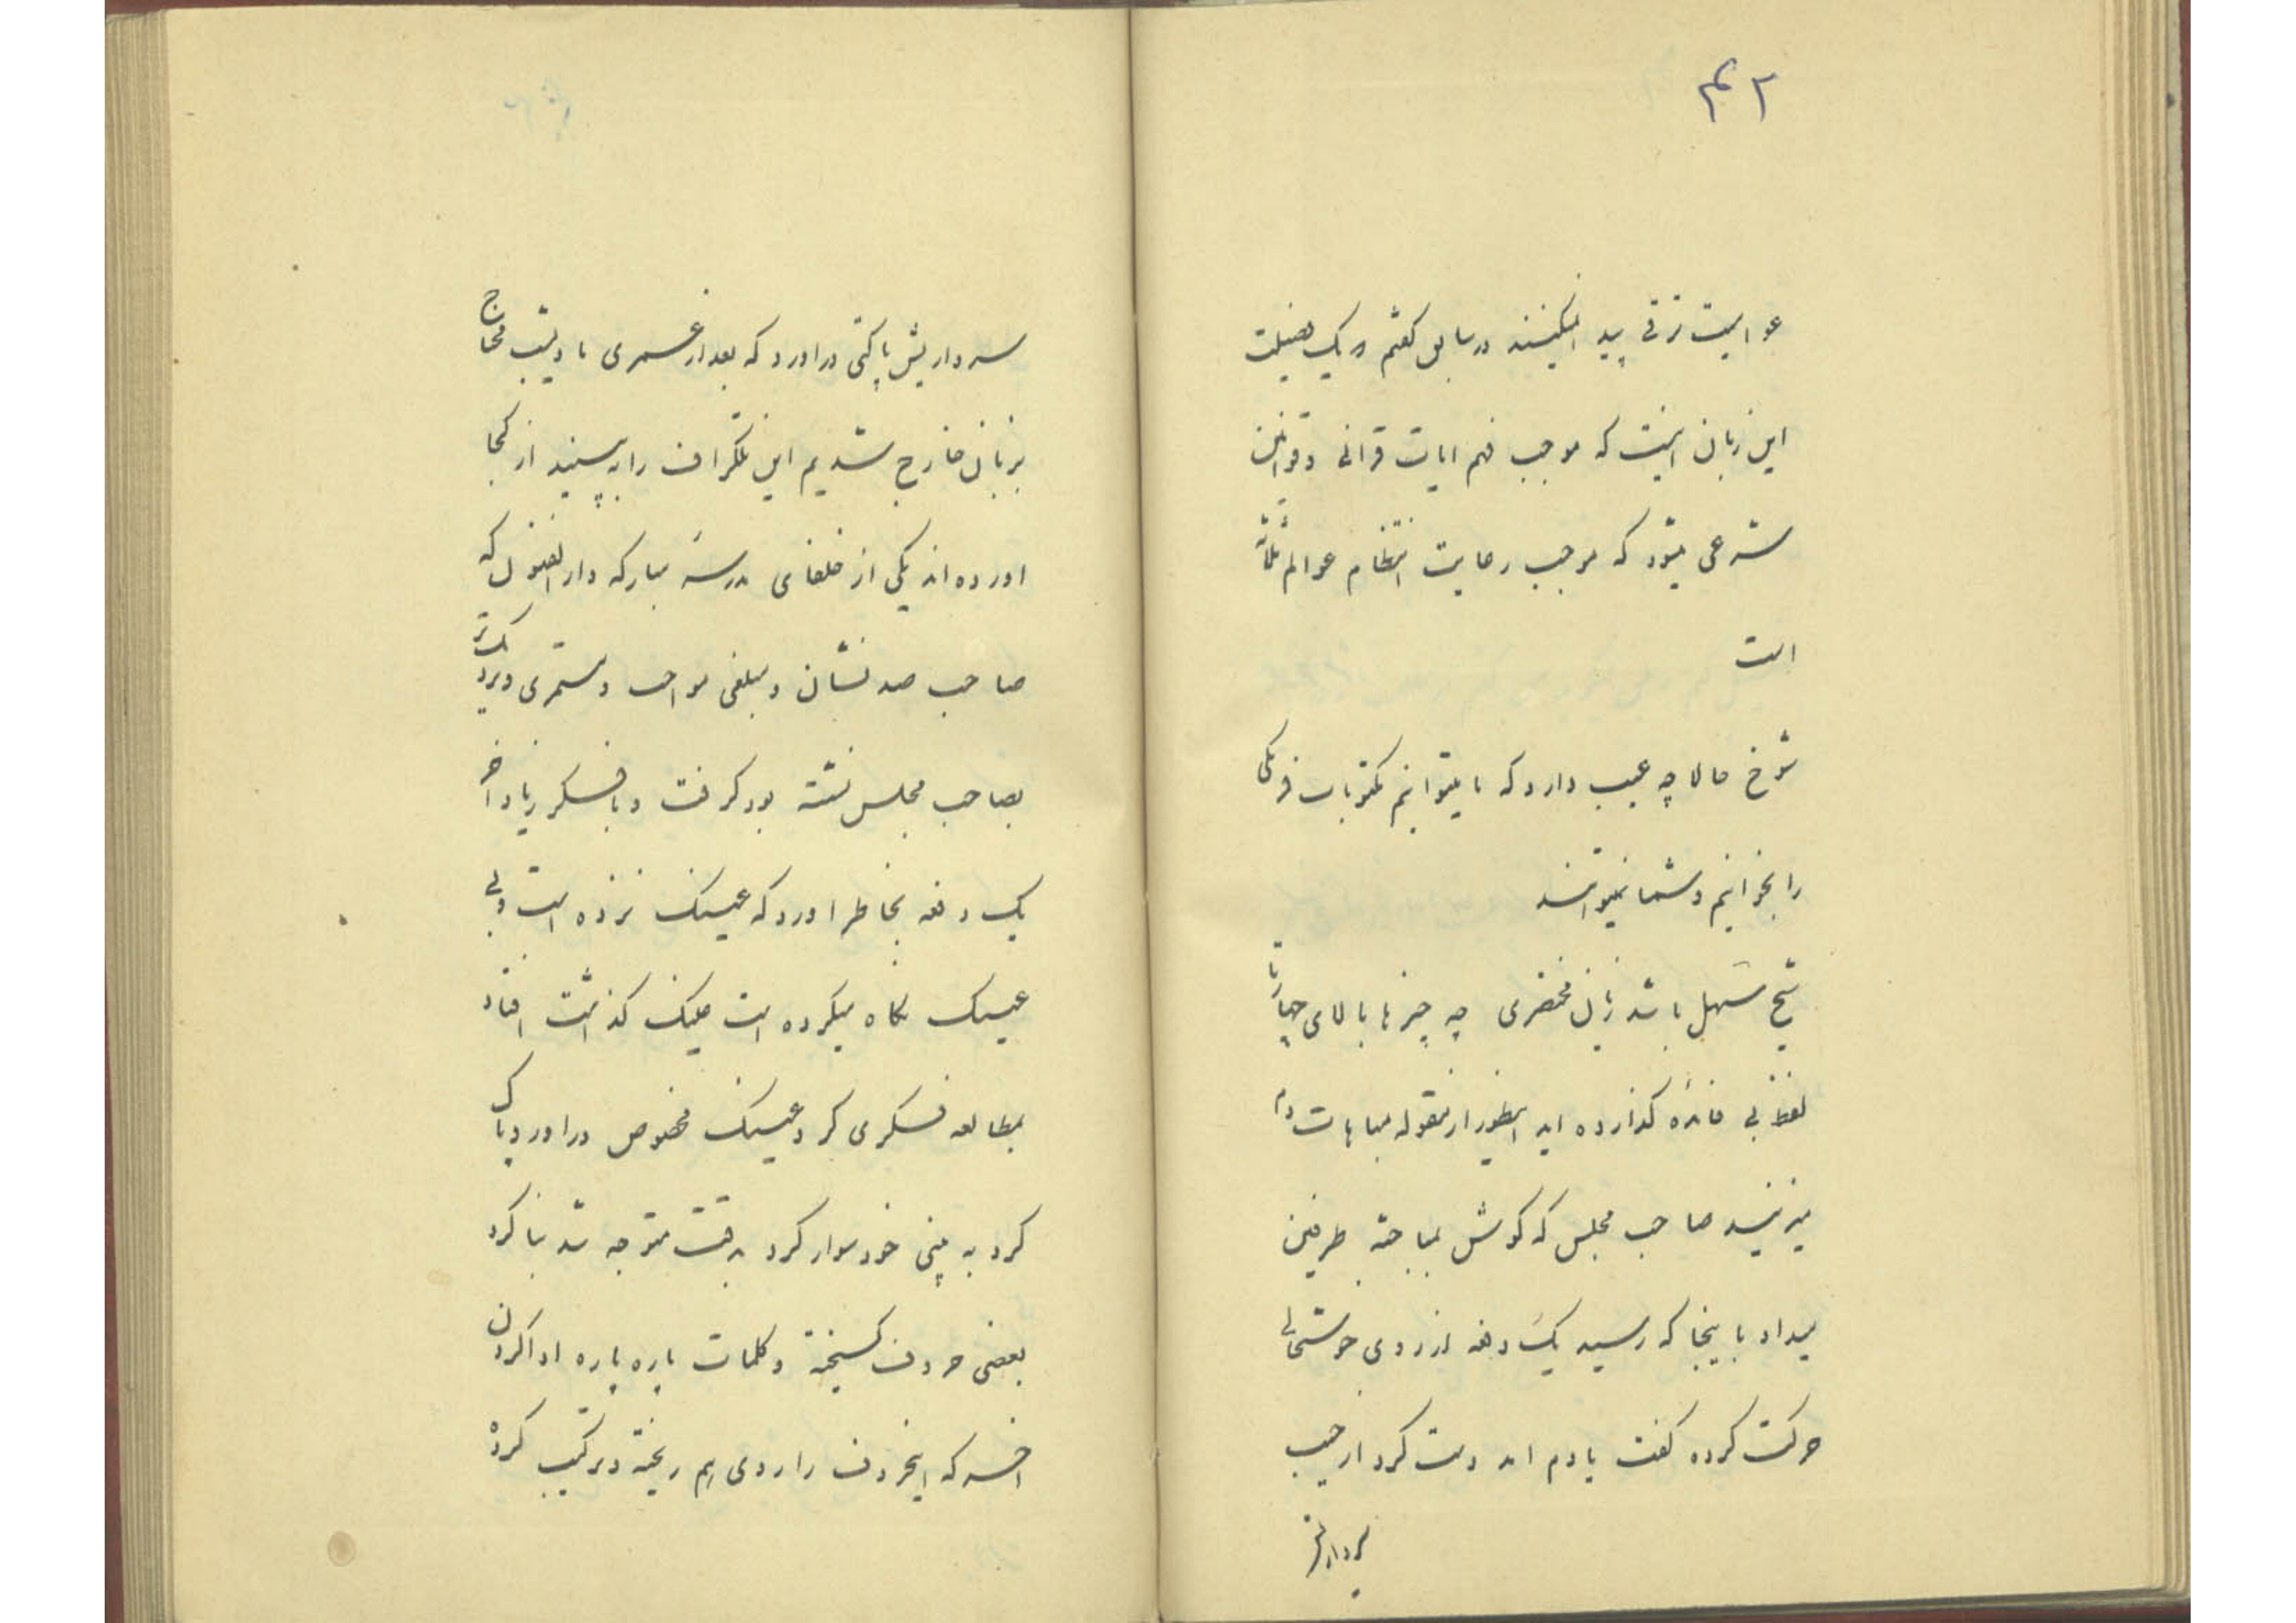 ۴۲
عوامیت ترقی پیدا نمیکنند در سابق گفتم و یک فضیلت
این زبان اینست که موجب فهم ایات قرانی و قوانین
شرعی میشود که موجب رعایت انتظام عوالم ثلاثه
است
شوخ حالا چه عیب دارد که ما میتوانیم مکتوبات فرنگی
را بخوانیم و شما نمیتوانید
شیخ سهل باشد زبان مختصری چه چیزها بالای عبارات
لفظ بی فائده گذارده اید اینطور از مقوله مباهات دم
میزنید صاحب مجلس که گوش بمباحثه طرفین
میداد باینجا که رسید یک دفعه از روی خوشحالی
حرکت کرده گفت یادم امد دست کرد از جیب
سرداریش
سرداریش پاکتی دراورد که بعد از عمری ما دیشب محتاج
بزبان خارج شدیم این تلگراف را به بینید از کجا
اورده اند یکی از خلفای مدرسه مبارکه دار الفنون که
صاحب صد نشان و مبلغی مواجب و مستمری و نزدیکتر
بصاحب مجلس نشسته بود گرفت و با فکر زیاد اخر
یک دفعه بخاطر اورد که عینک نزده است و بی
عینک نگاه میکرده است عینک گذاشت افتاد
بمطالعه فکری کرد عینک مخصوص دراورد پاک
کرد به بینی خود سوار کرد بدقت متوجه شد بنا کرد
بعضی حروف گسیخته و کلمات پاره پاره ادا کردن
اخر که اینحروف را روی هم ریخته و ترکیب کرده